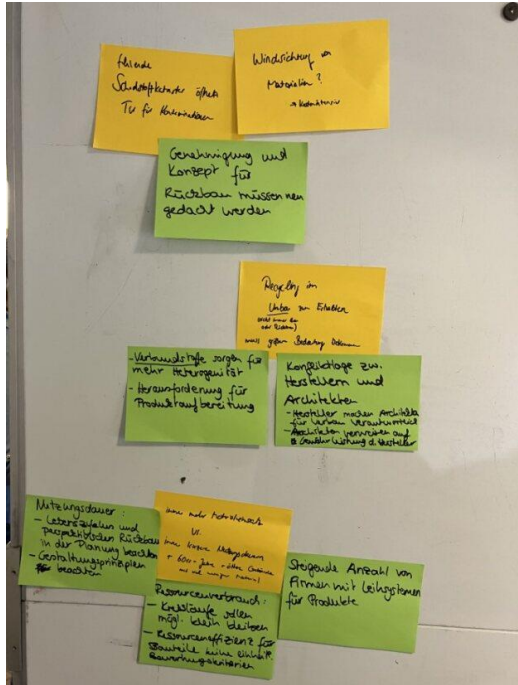 fehlende
Schadstoffkataster öffnet
Tür für Kontaminationen
Windsichtung von
Materialien?
→ Kostenintensiv
Genehmigung und
Konzept für
Rückbau müssen neu
gedacht werden
Regelung im
Umbau zum Erhalten
muss größere Bedeutung
- Verbundstoffe sorgen für
mehr Heterogenität
- Herausforderung für
Produktaufbereitung
Konfliktlage zw.
Herstellern und
Architekten
- Hersteller machen Architekten
für Verbau verantwortlich
- Architekten verweisen auf
Gewährleistung d. Hersteller
Nutzungsdauer:
- Lebenszyklus und
perspektivischen Rückbau
in der Planung beachten
- Gestaltungsprinzipien
beachten
immer mehr
vs.
immer kürzere Nutzungsdauern
Ressourcenverbrauch:
- Kreisläufe sollen
mögl. klein bleiben
- Ressourceneffizienz für
Bauteile keine einheitl.
Bewertungskriterien
Steigende Anzahl von
Firmen mit Leihsystemen
für Produkte